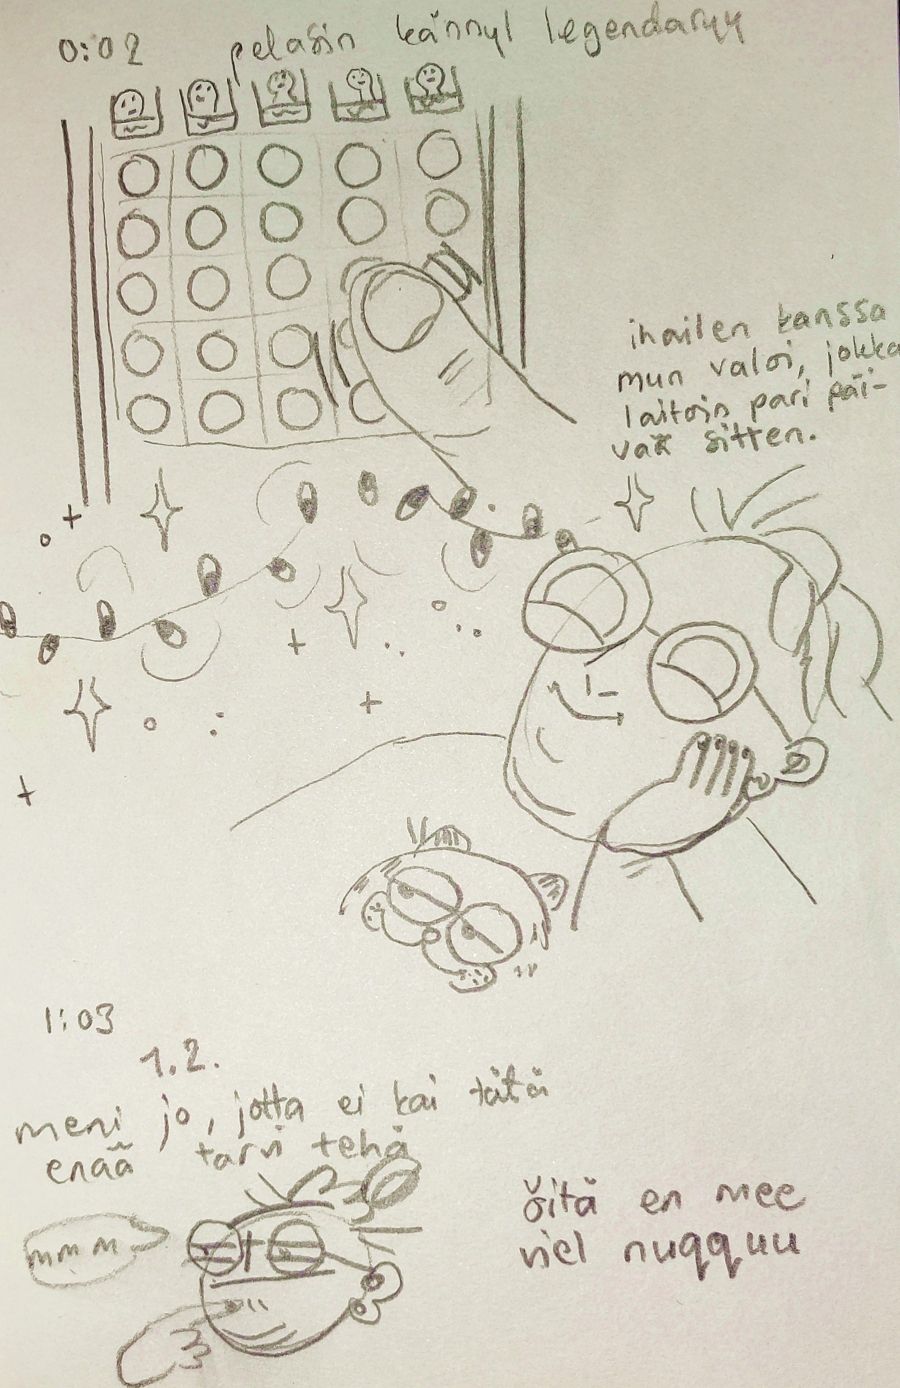 0:02 pelasin kännyl legendaryy
ihailen kanssa
mun valoi, jokka
laitoin pari päi-
vää sitten.
1:03
1.2.
meni jo, jotta ei kai tätä
enää tarvi tehä
mmm
sitä en mee
viel nuqquu